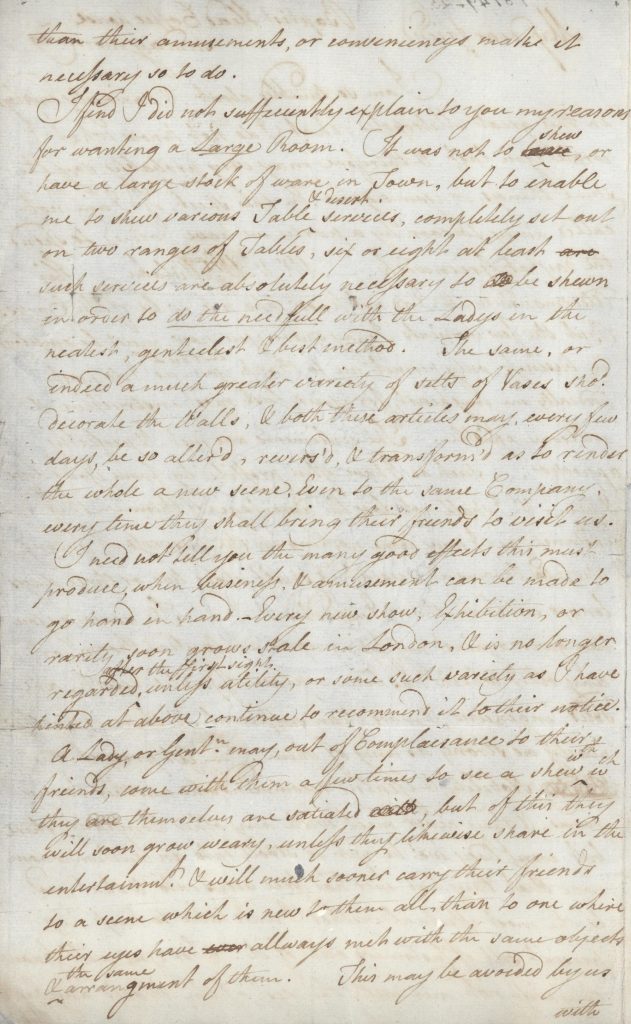 than their amusements, or conveniencys make it
necessary so to do.
I find I did not sufficiently explain to you my reasons
for wanting a Large Room. It was not to shew, or
have a large stock of ware in Town, but to enable
me to shew various Table & desert services, completely set out
on two ranges of Tables, six or eight at least are
such services are absolutely necessary to be shewn
in order to do the needfull with the Ladys in the
neatest, genteelest & best method. The same, or
indeed a much greater variety of setts of Vases sho.d
decorate the Walls, & both these articles may, every few
days, be so alter'd, revers'd, & transform'd as to render
the whole a new scene, Even to the same Company,
every time they shall bring their friends to visit us.
I need not tell you the many good effects this must
produce, when business, & amusement can be made to
go hand in hand. Every new show, Exhibition, or
rarity soon grows stale in London, & is no longer
regarded, after the first sight, unless utility, or some such variety as I have
hinted at above continue to recommend it to their notice.
A Lady, or Gent.n may, out of Complaisance to their
friends, come with them a few times to see a shew with wch
they are themselves are satiated with, but of this they
will soon grow weary, unless they likewise share in the
entertainmt. & will much sooner carry their friends
to a scene which is new to them all, than to one where
their eyes have ever allways met with the same objects
& the same arrangment of them. This may be avoided by us
with